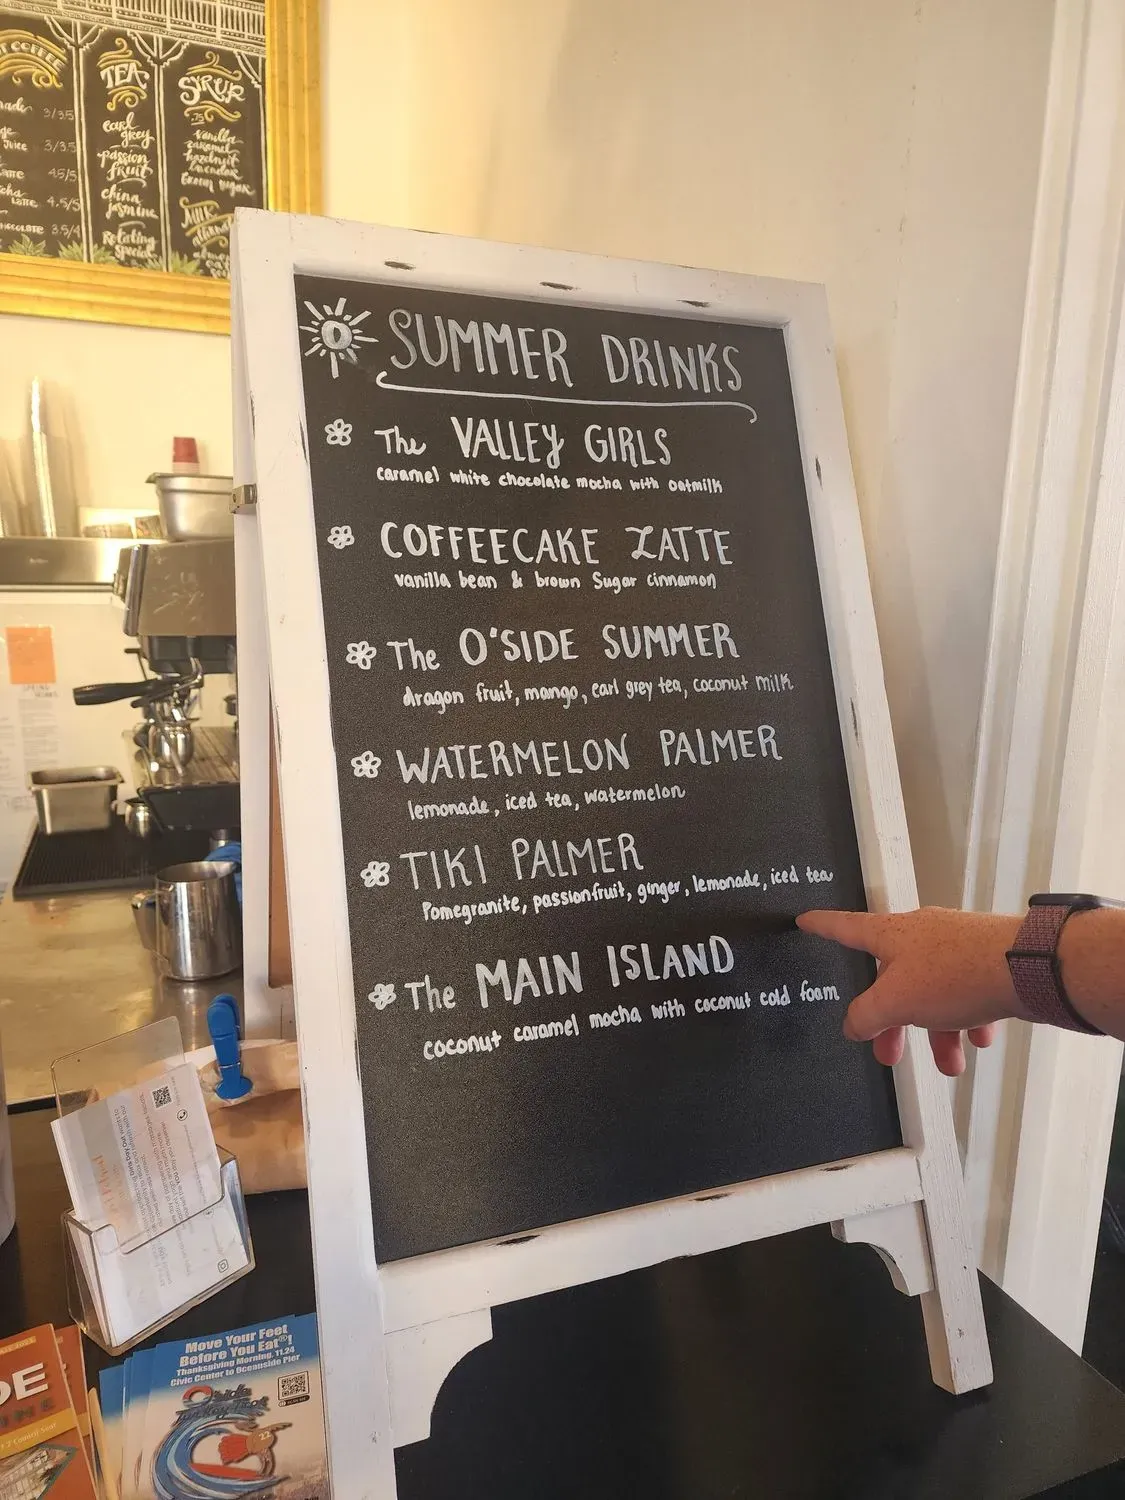 COFFEE
TEA
SYRUP
.75
3/3.5
earl
grey
vanilla
caramel
hazelnut
lavender
brown sugar
Juice 3/3.5
passion
fruit
4.5/5
Latte 4.5/5
china
jasmine
MILK
3.5/4
Rotating
Special
SUMMER DRINKS
The VALLEY GIRLS
caramel white chocolate mocha with oatmilk
COFFEECAKE LATTE
vanilla bean & brown Sugar cinnamon
The O'SIDE SUMMER
dragon fruit, mango, earl grey tea, coconut milk
WATERMELON PALMER
lemonade, iced tea, watermelon
TIKI PALMER
Pomegranite, passionfruit, ginger, lemonade, iced tea
The MAIN ISLAND
coconut caramel mocha with coconut cold foam
Move Your Feet
Before You Eat®!
Thanksgiving Morning, 11.24
Civic Center to Oceanside Pier
O'side
Turkey Trot